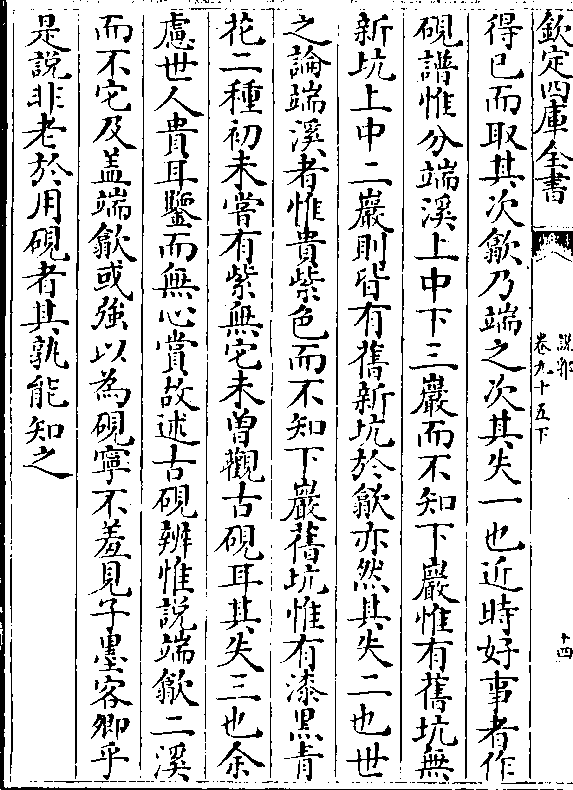 欽定四庫全書
說郛
卷九十五下
十四
得已而取其次歙乃端之次其失一也近時好事者作
硯譜惟分端溪上中下三巖而不知下巖惟有舊坑無
新坑上中二巖則皆有舊新坑於歙亦然其失二也世
之論端溪者惟貴紫色而不知下巖舊坑惟有漆黑青
花二種初未嘗有紫無它未曾觀古硯耳其失三也余
慮世人貴耳鑒而無心賞故述古硯辨惟說端歙二溪
而不它及盖端歙或強以為硯寧不羞見子墨客卿乎
是說非老於用硯者其孰能知之